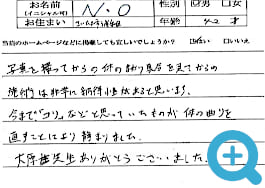 お名前 (イニシャル可) N.O 性別 ☑男 □女
お住まい 年齢 42 才
当店のホームページなどに掲載しても宜しいでしょうか？ ☑はい □いいえ
写真を撮ってからの体の曲り具合を見てからの
施術は非常に納得いくものがあると思います。
今まで"コリ"などと思っていたものが体の曲りを
直すことにより 静まりました。
先生ありがとうございました。